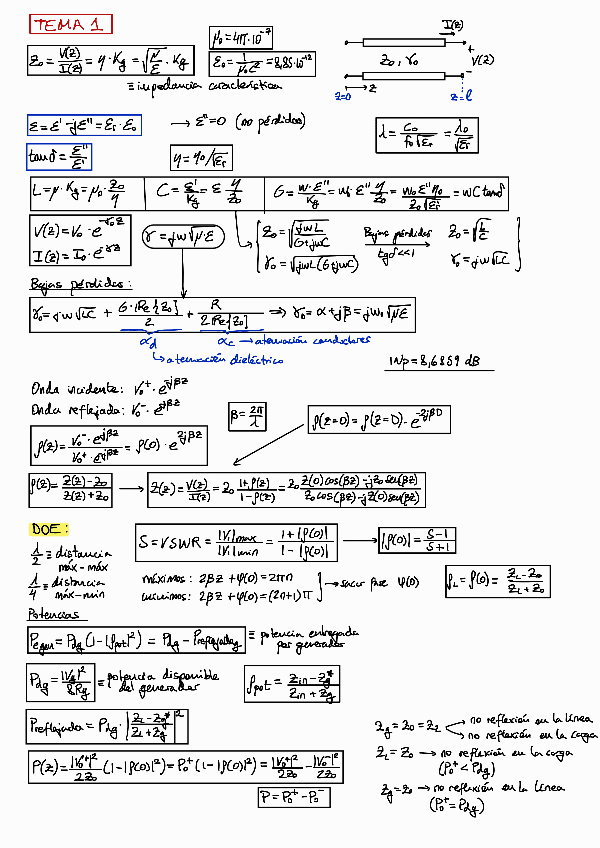 TEMA 1
Z₀ = V(z)/I(z) = η · Kg = √(μ/ε) · Kg
≡ impedancia característica
μ₀ = 4π·10⁻⁷
ε₀ = 1/(μ₀c²) = 8,85·10⁻¹²
I(z)
Z₀, γ₀
+
V(z)
-
z=0
z
z=l
ε = ε' - jε'' = εr · ε₀ → ε''=0 (no pérdidas)
λ = c₀/(f₀√εr) = λ₀/√εr
tanδ = ε''/ε'
η = η₀/√εr
L = μ · Kg = μ₀ · Z₀/η
C = ε'/Kg = ε η/Z₀
G = w·ε''/Kg = w·ε'' η/Z₀ = w₀ε''η₀/(Z₀√εr) = wC tanδ
V(z) = V₀ · e^(-γ₀z)
I(z) = I₀ · e^(-γz)
γ = jw√(μ·ε)
Z₀ = √(jwL/(G+jwC))
γ₀ = √(jwL(G+jwC))
Bajas pérdidas
tgδ<<1
Z₀ = √(L/C)
γ₀ = jw√(LC)
Bajas pérdidas:
γ₀ = jw√(LC) + G·Re{Z₀}/2 + R/(2Re{Z₀}) ⇒ γ₀ = α + jβ = jw₀√(με)
αd
αc → atenuación conductores
atenuación dieléctrico
1Np = 8,6859 dB
Onda incidente: V₀⁺ · e^(-jβz)
Onda reflejada: V₀⁻ · e^(jβz)
β = 2π/λ
ρ(z=0) = ρ(z=D) · e^(-2jβD)
ρ(z) = V₀⁻·e^(jβz)/(V₀⁺·e^(-jβz)) = ρ(0) · e^(2jβz)
ρ(z) = (Z(z)-Z₀)/(Z(z)+Z₀) → Z(z) = V(z)/I(z) = Z₀ (1+ρ(z))/(1-ρ(z)) = Z₀ (Z(0)cos(βz)-jZ₀sen(βz))/(Z₀cos(βz)-jZ(0)sen(βz))
DOE:
λ/2 ≡ distancia máx-máx
λ/4 ≡ distancia máx-min
S = VSWR = |V|max/|V|min = (1+|ρ(0)|)/(1-|ρ(0)|) → |ρ(0)| = (S-1)/(S+1)
máximos: 2βz + φ(0) = 2πn
mínimos: 2βz + φ(0) = (2n+1)π
→ sacar fase φ(0)
ρL = ρ(0) = (ZL-Z₀)/(ZL+Z₀)
Potencias
Pegen = Pdg (1-|ρpot|²) = Pdg - Preflejadag ≡ potencia entregada por generador
Pdg = |Vg|²/8Rg ≡ potencia disponible del generador
ρpot = (Zin-Zg*)/(Zin+Zg)
Preflejada = Pdg · |(ZL-Zg*)/(ZL+Zg)|²
P(z) = |V₀⁺|²/2Z₀ (1-|ρ(0)|²) = P₀⁺(1-|ρ(0)|²) = |V₀⁺|²/2Z₀ - |V₀⁻|²/2Z₀
P = P₀⁺ - P₀⁻
Zg = Z₀ = ZL
no reflexión en la línea
no reflexión en la carga
ZL = Z₀ → no reflexión en la carga
(P₀⁺ < Pdg)
Zg = Z₀ → no reflexión en la línea
(P₀⁺ = Pdg)